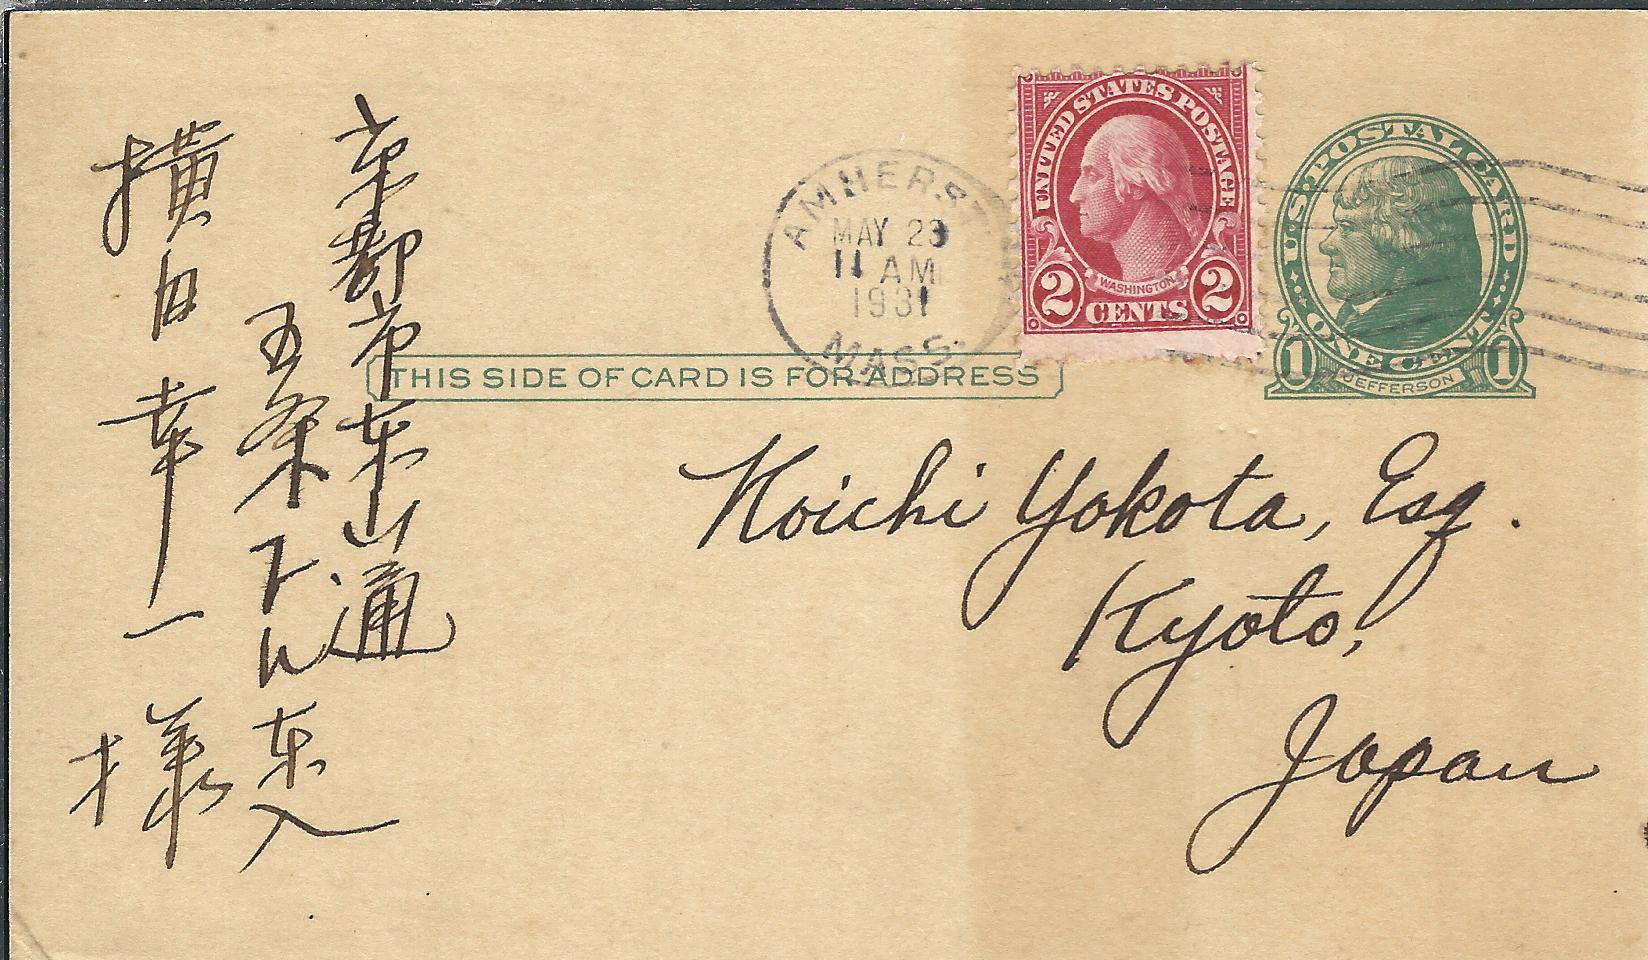 京都市東山通
五条下ル東入
横田幸一様
AMHERST
MAY 23
11 AM
1931
MASS.
UNITED STATES POSTAGE
WASHINGTON
2 CENTS 2
U.S. POSTAL CARD
1 ONE CENT 1
JEFFERSON
THIS SIDE OF CARD IS FOR ADDRESS
Koichi Yokota, Esq.
Kyoto,
Japan